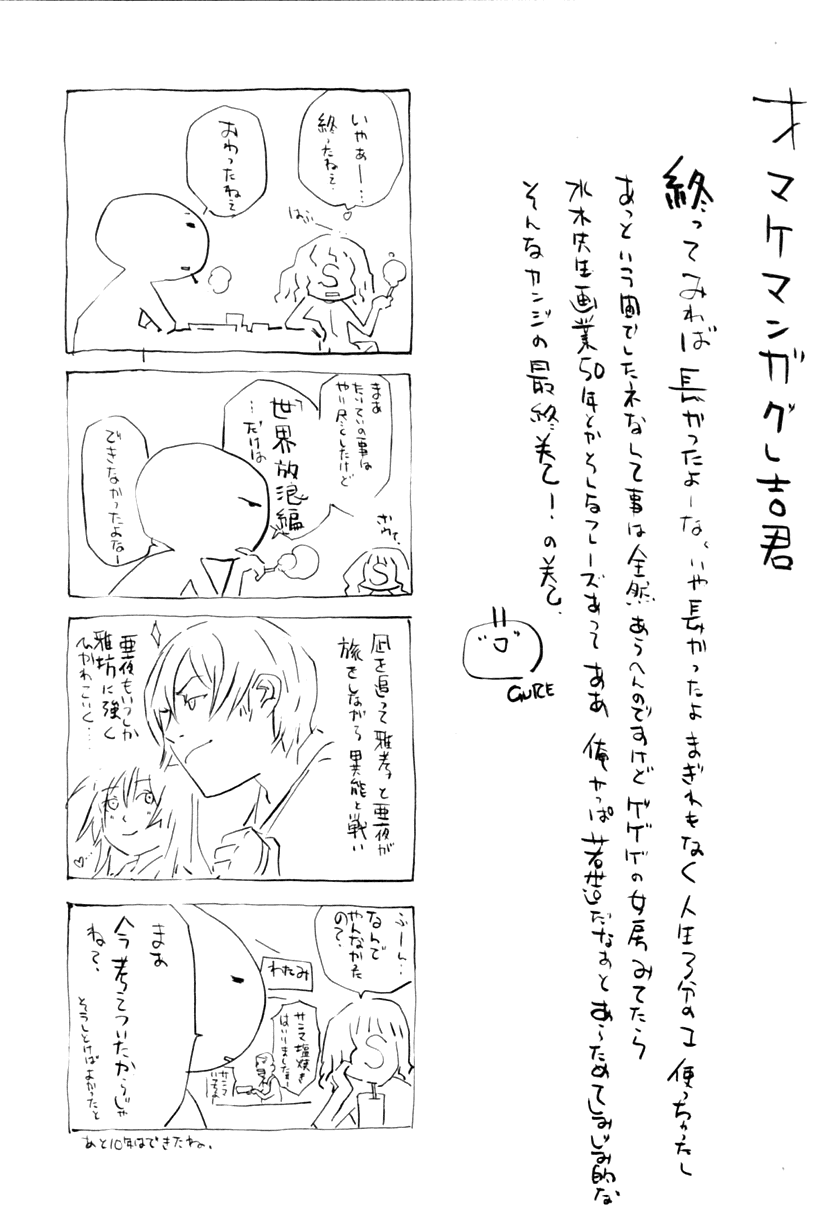 オマケマンガグレ吉君
終ってみれば長かったよーな、いや長かったよまぎれもなく人生3分の1使っちゃったし
あっという間でしたネなんて事は全然あらへんのですけどゲゲゲの女房みてたら
水木先生画業50年とかそんなフレーズあって ああ 俺やっぱ若造だなぁとあらためてしみじみ的な
そんなカンジの最終美て!の美て.
GURE
いやぁー…
終ったねぇ
♡
おわったねぇ
はふー
S
まあ
たいていの事は
やり尽くしたけど
「世界放浪編」
…だけは
できなかったよなー
S
凪を追って雅孝と亜夜が
旅をしながら異能と戦い
亜夜もいつしか
雅坊に強く
ひかれていく…
♡
ふーん…
なんで
やんなかった
の?
わたみ
サンマ塩焼き
はいりましたぁー
S
まぁ
今考えついたからじゃ
ねぇ?
そうしとけばよかったと
あと10年はできたね。